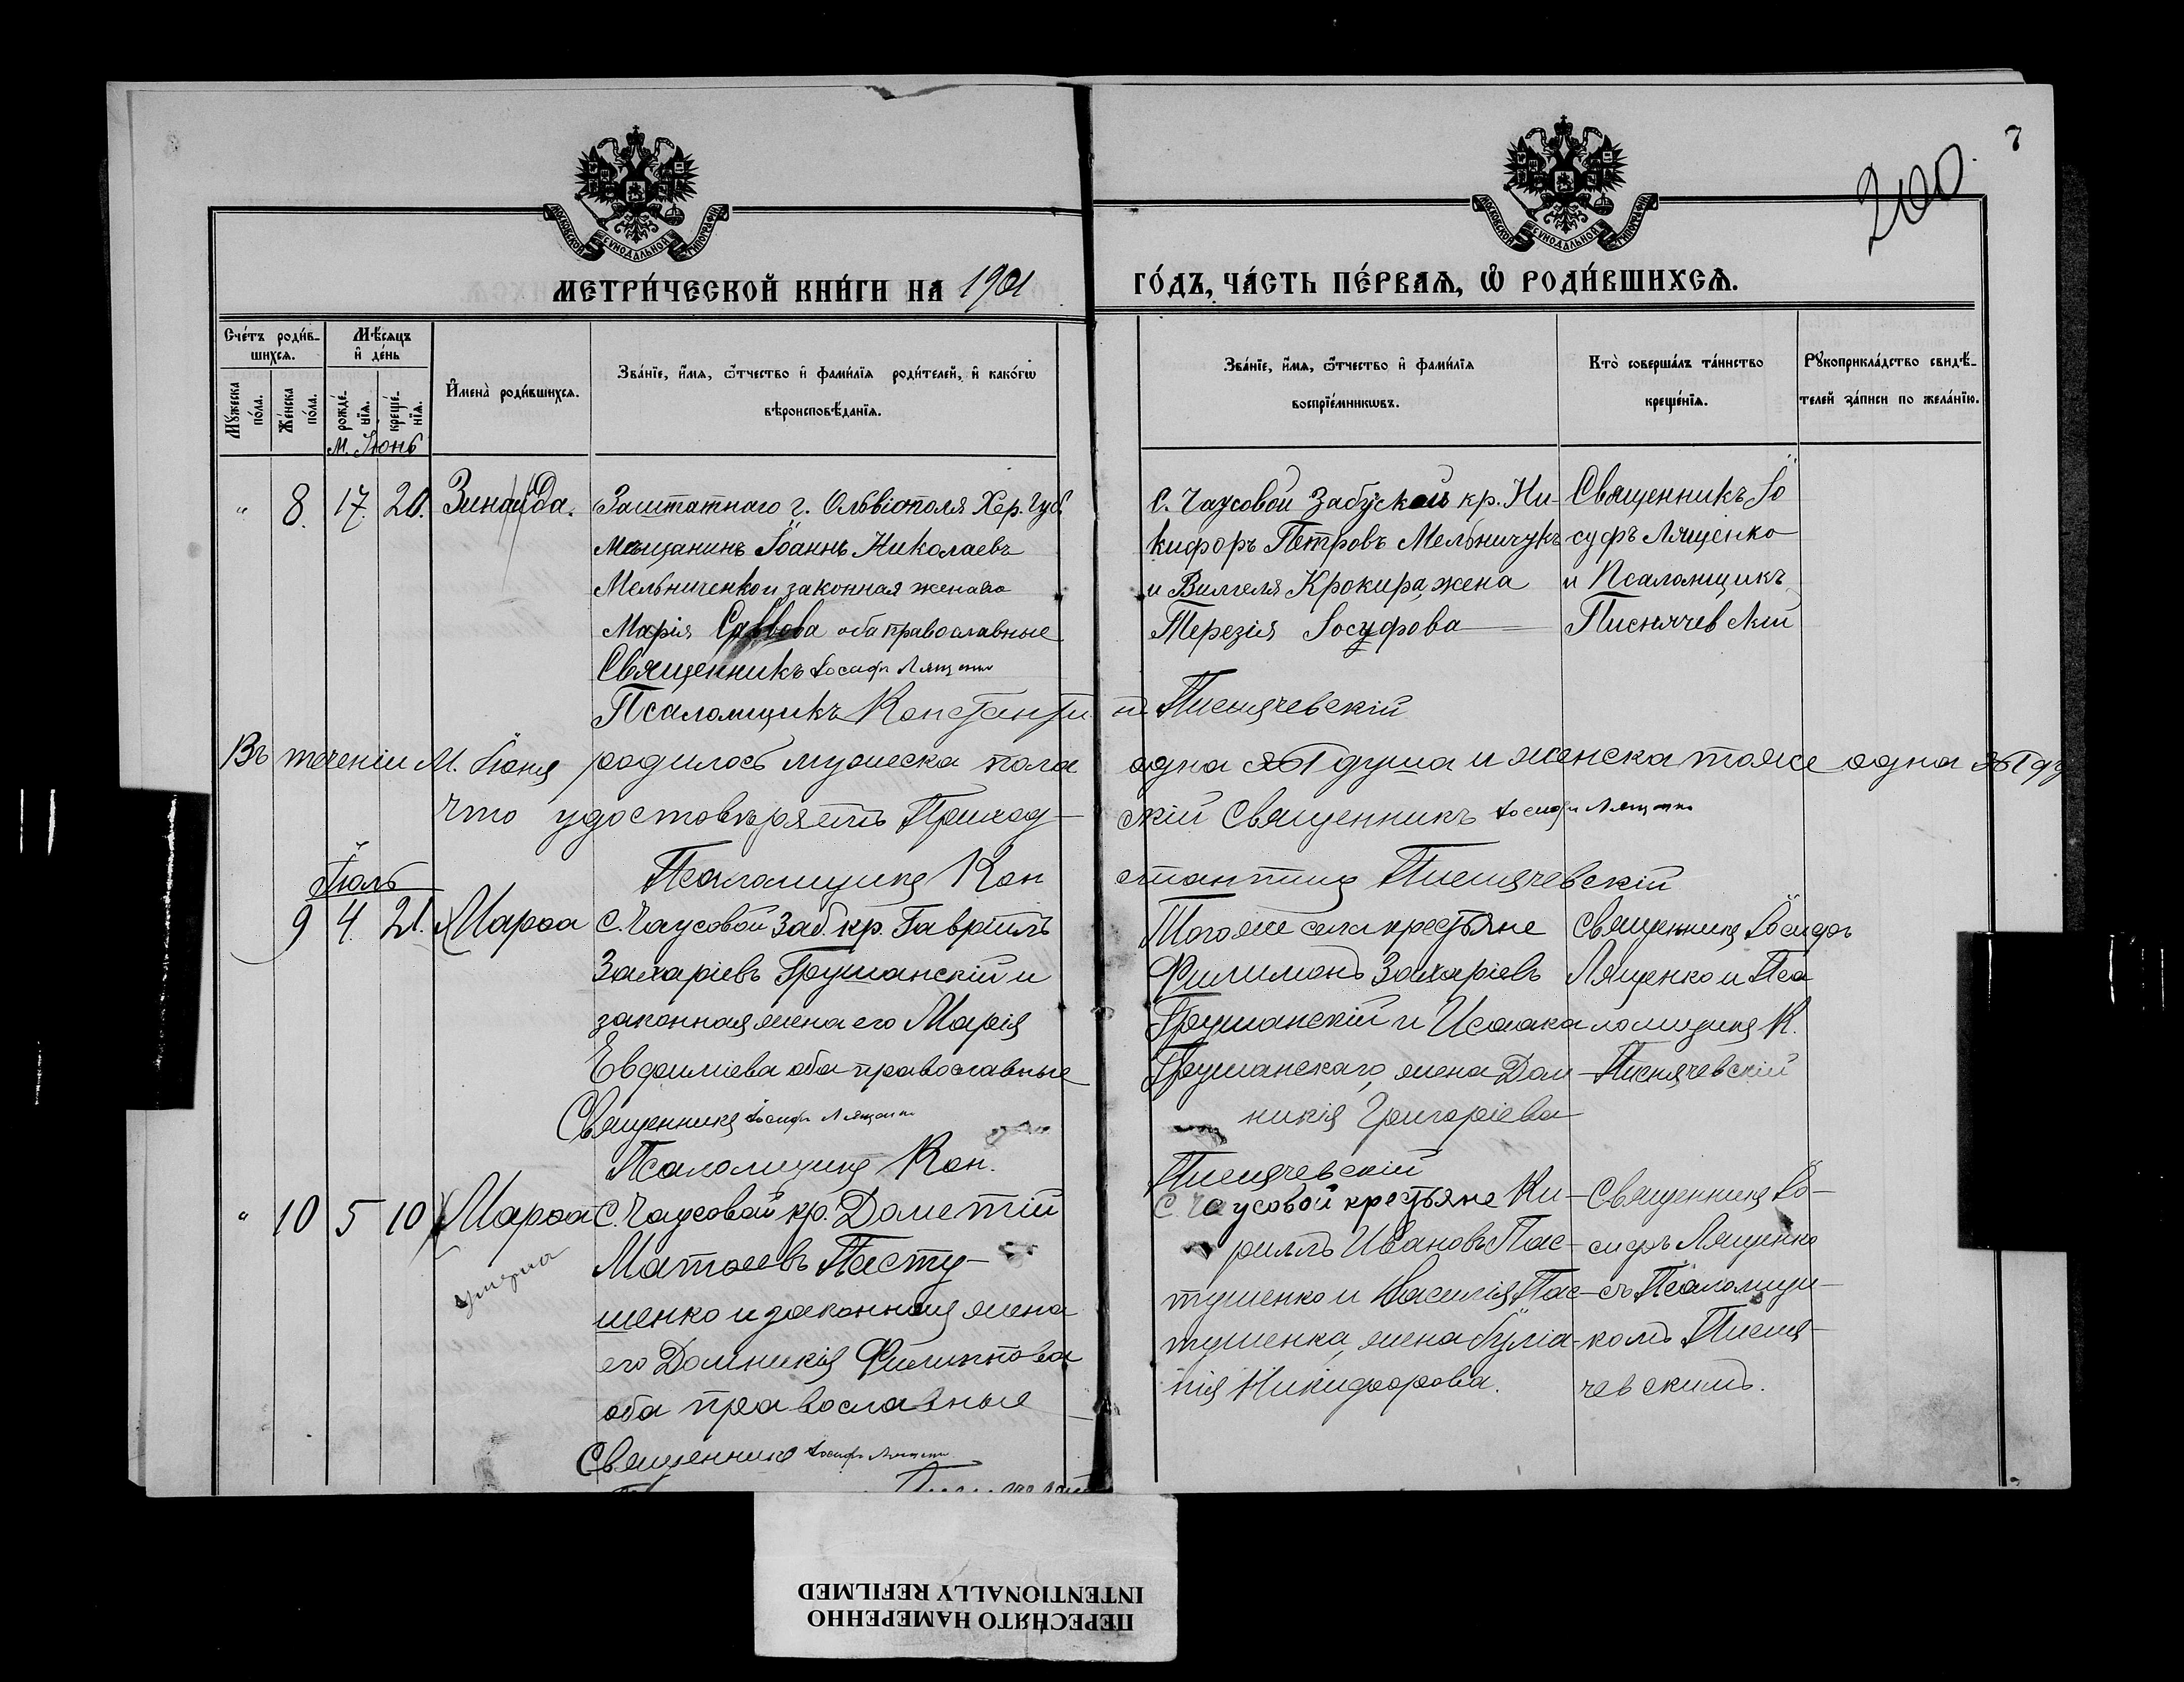 7
200
МОСКОВСКОЙ СѴНОДАЛЬНОЙ ТИПОГРАФІИ
МОСКОВСКОЙ СѴНОДАЛЬНОЙ ТИПОГРАФІИ
МЕТРИ́ЧЕСКОЙ КНИ́ГИ НА 1901 ГО́ДЪ, ЧА́СТЬ ПЕ́РВАѦ, Ѡ҆ РОДИ́ВШИХСѦ.
Сче́тъ роди́в-
шихсѧ.
Мꙋ́жеска по́ла.
Же́нска по́ла.
Мѣ́сѧцъ
и҆ де́нь
рожде́-нїѧ.
креще́-нїѧ.
И҆мена̀ роди́вшихсѧ.
Зва́нїе, и҆́мѧ, ѻ҆́тчество и҆ фами́лїѧ роди́телей, и҆ како́гѡ
вѣроисповѣ́данїѧ.
Зва́нїе, и҆́мѧ, ѻ҆́тчество и҆ фами́лїѧ
воспрїе́мникѡвъ.
Кто̀ соверша́лъ та́инство
креще́нїѧ.
Рꙋкоприкла́дство свидѣ́-
телей за́писи по жела́нїю.
М. Іюнь
" 8. 17. 20. Зинаида. Заштатнаго г. Ольвіополя Хер. Губ.
мѣщанинъ Іоаннъ Николаевъ
Мельниченко и законная жена его
Марія Саввова оба православные
Священникъ Іосифъ Лященко
Псаломщикъ Константинъ Писнячевскій
С. Чаусовой Забужской кр. Ни-
кифоръ Петровъ Мельничукъ
и Вилгеля Крокира, жена
Терезія Іосуфова
Священникъ Іо
суфъ Лященко
и Псаломщикъ
Писнячевскій
Въ теченіи М. Іюня родилось мужеска пола одна /1/ душа и женска тоже одна /1/ ду
что удостовѣряетъ Приход-скій Священникъ Іосифъ Лященко
Псаломщикъ Константинъ Писнячевскій
Іюль
9 4. 21. Марѳа С. Чаусовой Заб. кр. Гавріилъ
Захаріевъ Грушанскій и
законная жена его Марія
Евфиміева оба православные
Священникъ Іосифъ Лященко
Псаломщикъ Кон. Писнячевскій
Того же села крестьяне
Филимонъ Захаріевъ
Грушанскій и Исаака
Грушанскаго, жена Дом-
никія Григоріева
Священникъ Іосифъ
Лященко и Пса
ломщикъ К.
Писнячевскій
" 10 5 10 Марѳа С. Чаусовой кр. Дометій
умерла
Матѳеевъ Пасту-
шенко и законная жена
его Домникія Филиппова
оба православные
Священникъ Іосифъ Лященко
С. Чаусовой крестьяне Ки-
риллъ Ивановъ Пас-
тушенко и Василія Пас-
тушенка, жена Іуліа-
нія Никифорова.
Священникъ Іо-
сифъ Лященко
съ Псаломщи-
комъ Писня-
чевскимъ.
ПЕРЕСНЯТО НАМЕРЕННО
INTENTIONALLY REFILMED